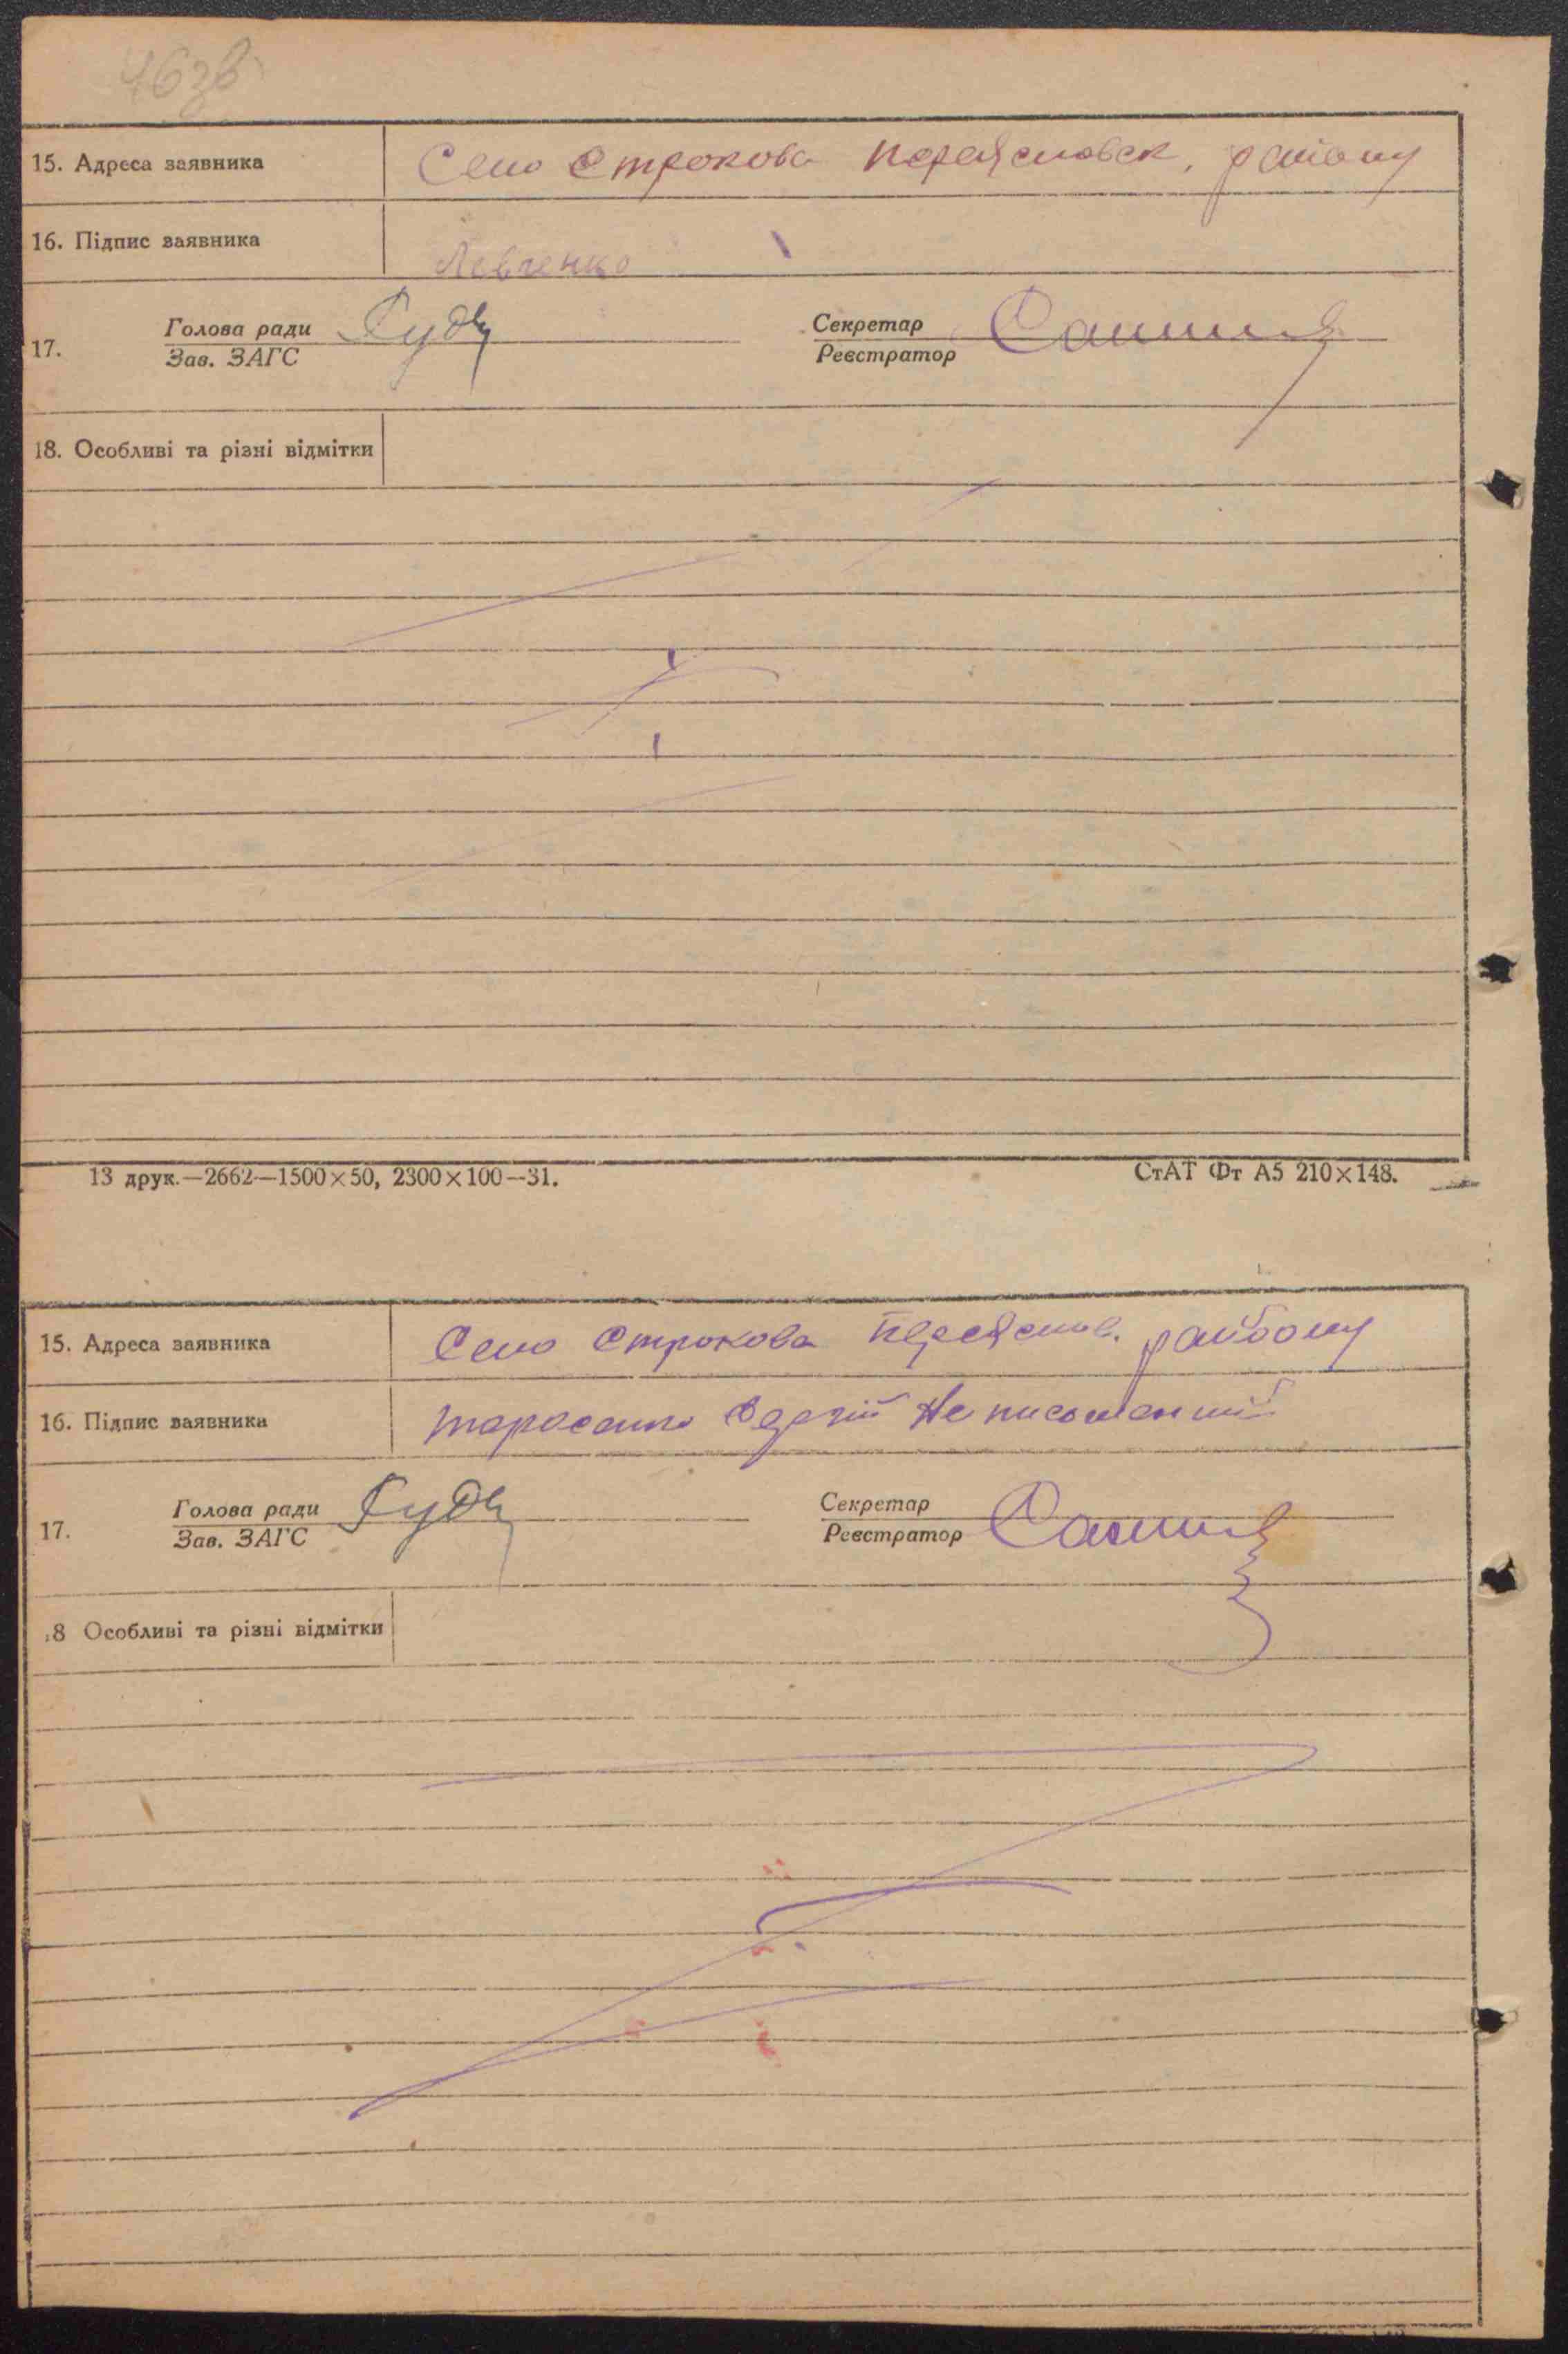 46зв
15. Адреса заявника Село Строкова Переясловск. району
16. Підпис заявника Левченко
17. Голова ради Секретар
Зав. ЗАГС Реєстратор
18. Особливі та різні відмітки
13 друк.—2662—1500×50, 2300×100—31. СтАТ Фт А5 210×148.
15. Адреса заявника Село Строкова Переяслов. району
16. Підпис заявника Тарасенко Неписьменний
17. Голова ради Секретар
Зав. ЗАГС Реєстратор
8 Особливі та різні відмітки